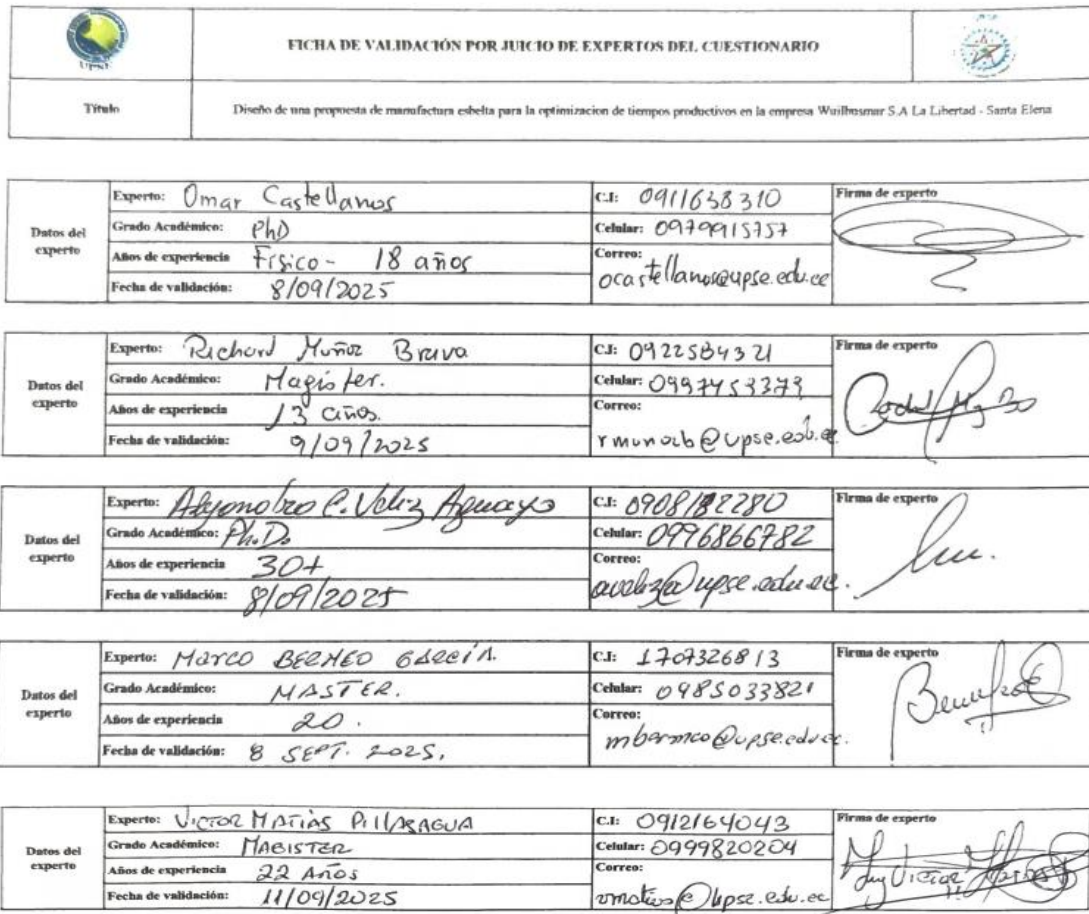 UPSE
FICHA DE VALIDACIÓN POR JUICIO DE EXPERTOS DEL CUESTIONARIO
Título
Diseño de una propuesta de manufactura esbelta para la optimizacion de tiempos productivos en la empresa Wuilhusmar S.A La Libertad - Santa Elena
Datos del experto
Experto: Omar Castellanos
C.I: 0911638310
Firma de experto
Grado Académico: PhD
Celular: 0979915757
Años de experiencia Físico- 18 años
Correo: ocastellanos@upse.edu.ec
Fecha de validación: 8/09/2025
Datos del experto
Experto: Richard Muñoz Bravo
C.I: 0922584321
Firma de experto
Grado Académico: Magister.
Celular: 0997453373
Años de experiencia 13 años.
Correo: rmunozb@upse.edu.ec
Fecha de validación: 9/09/2025
Datos del experto
Experto: Alejandro C. Veliz Aguayo
C.I: 0908182280
Firma de experto
Grado Académico: Ph.D.
Celular: 0996866782
Años de experiencia 30+
Correo: aveliz@upse.edu.ec.
Fecha de validación: 8/09/2025
Datos del experto
Experto: Marco BERMEO GARCÍA.
C.I: 1707326813
Firma de experto
Grado Académico: MASTER.
Celular: 0985033821
Años de experiencia 20.
Correo: mbermeo@upse.edu.ec.
Fecha de validación: 8 SEPT. 2025.
Datos del experto
Experto: VICTOR MATIAS PILLASAGUA
C.I: 0912164043
Firma de experto
Grado Académico: MAGISTER
Celular: 0999820204
Años de experiencia 22 Años
Correo: vmatias@upse.edu.ec
Fecha de validación: 11/09/2025
Ing Victor